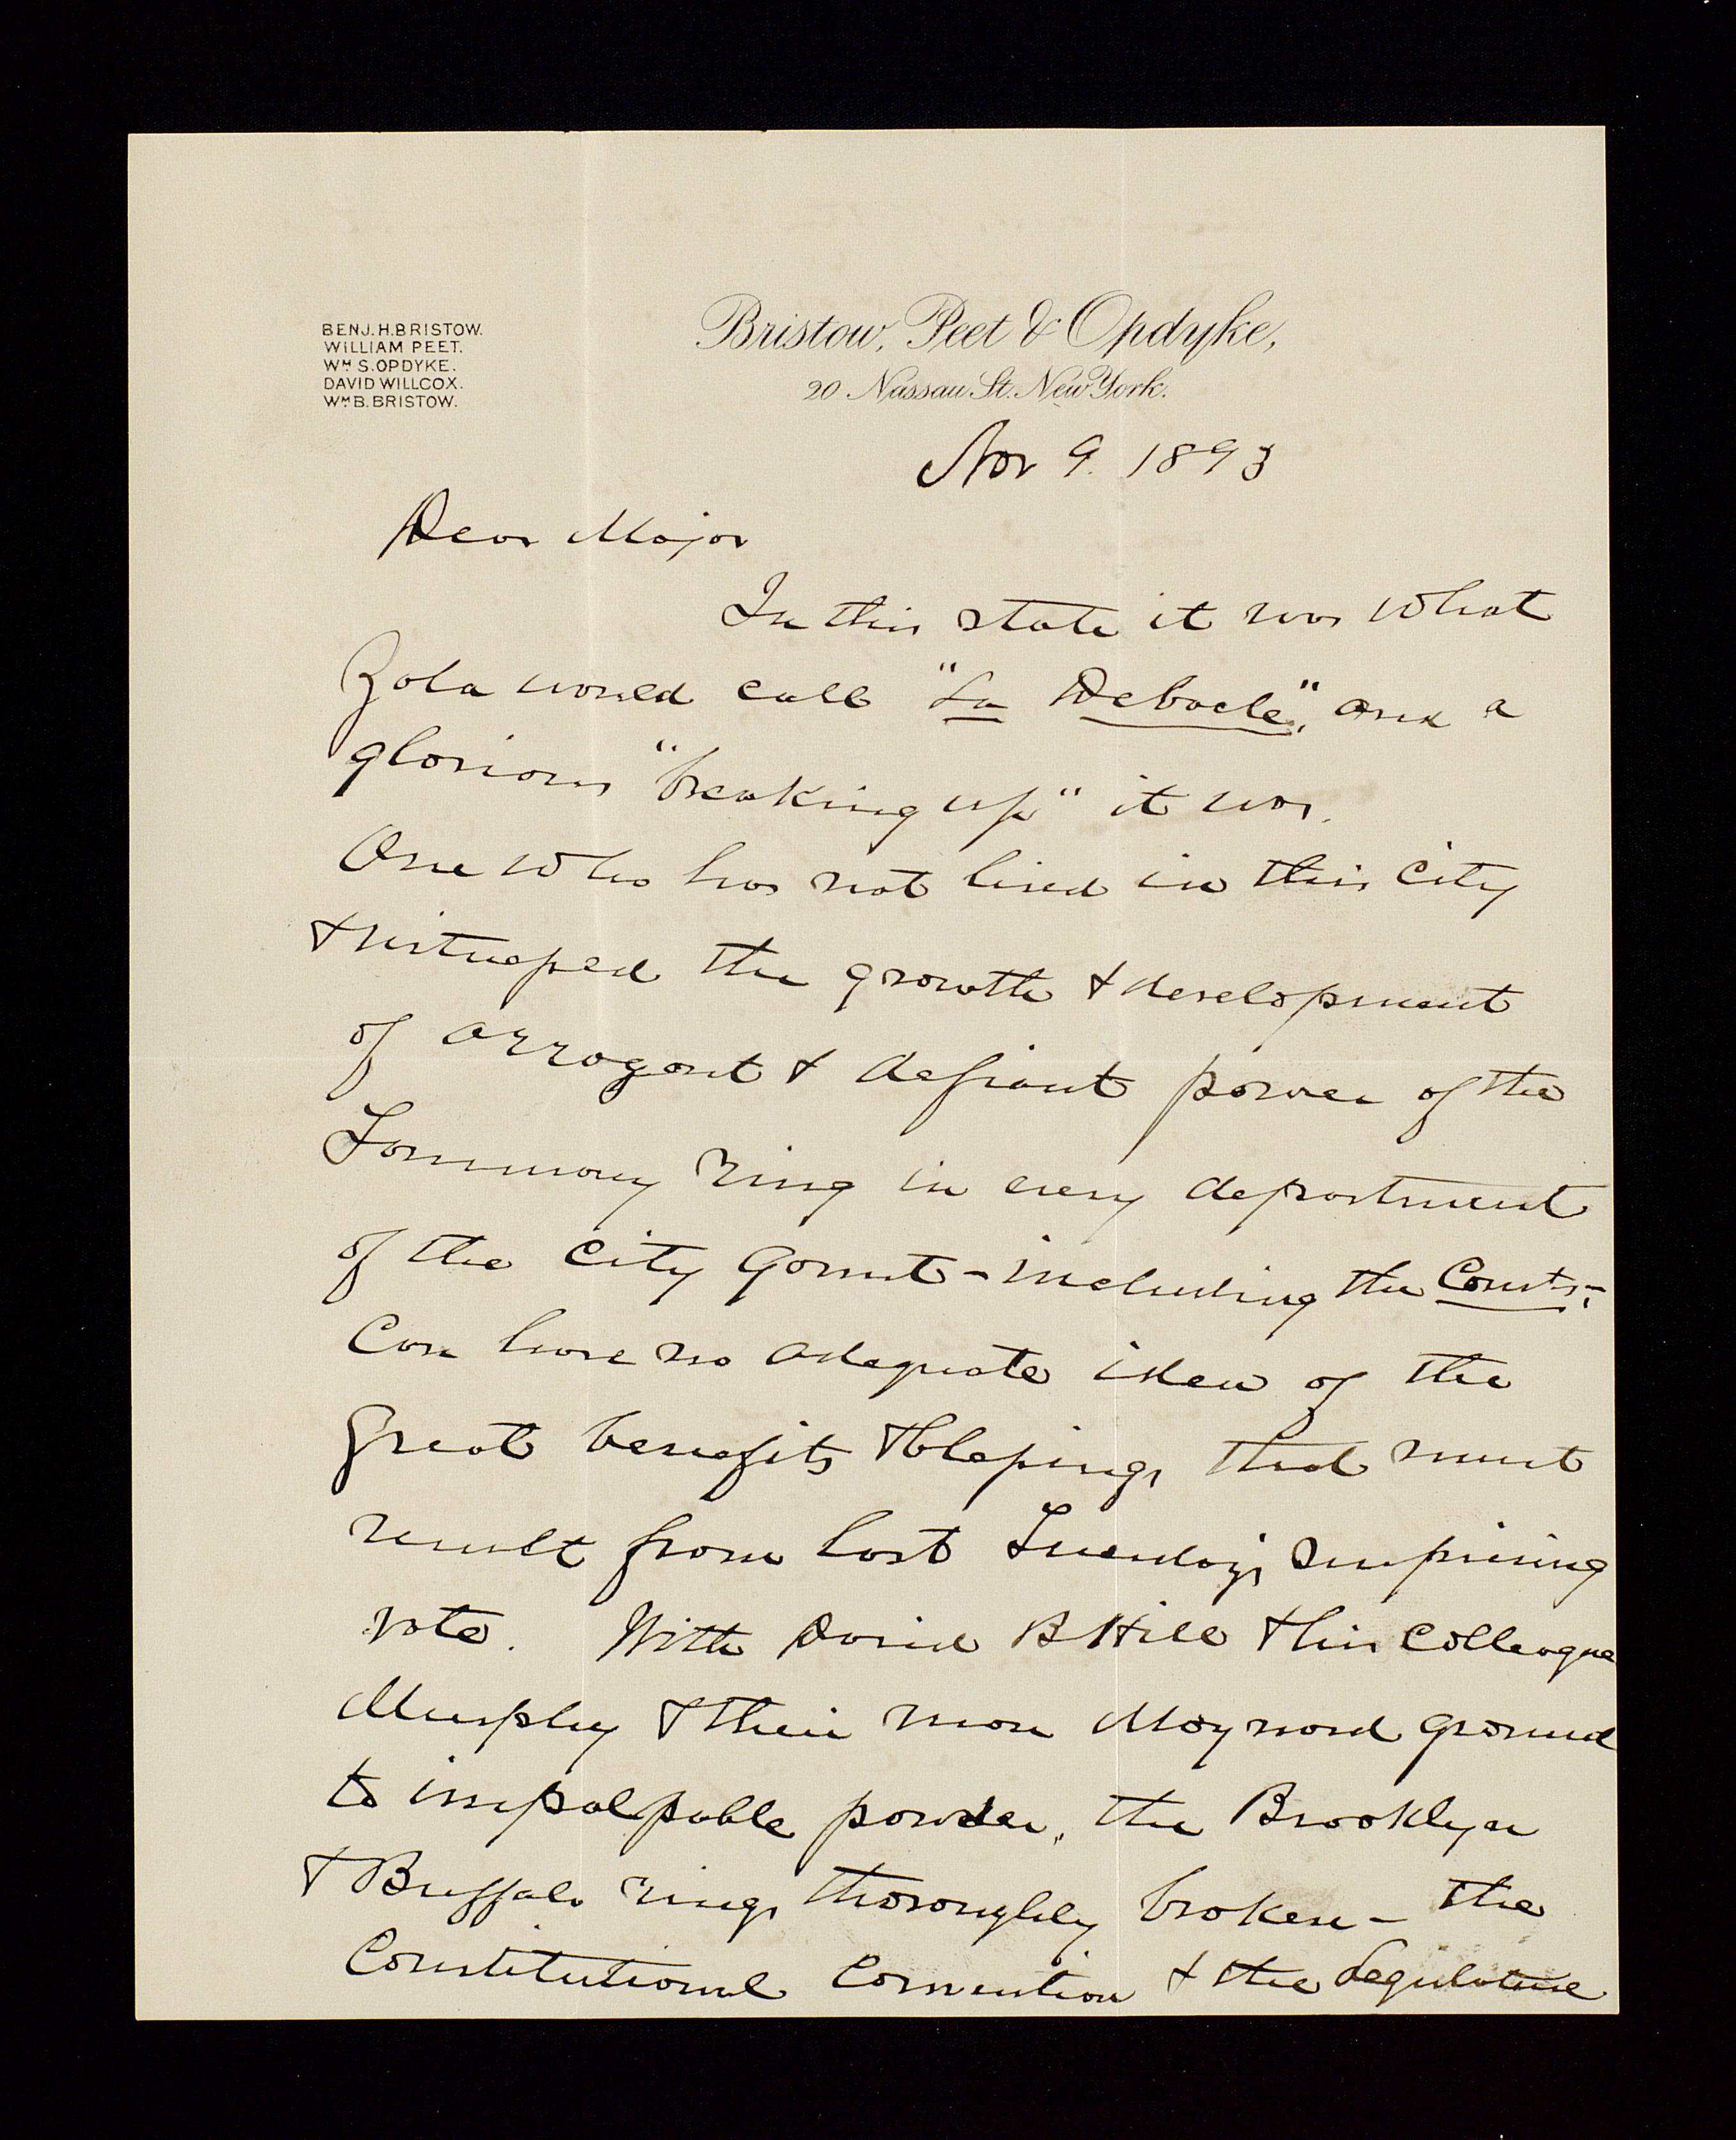 BENJ. H. BRISTOW.
WILLIAM PEET.
WM S. OPDYKE.
DAVID WILLCOX.
WM B. BRISTOW.
Bristow, Peet & Opdyke,
20 Nassau St. New York.
Nov 9. 1893
Dear Major
In this state it was what
Zola would call "La Debacle", and a
glorious "breaking up" it was.
One who has not lived in this city
& witnessed the growth & development
of arrogant & defiant power of the
Tammany ring in every department
of the city Govmt - including the Courts -
Can have no adequate idea of the
great benefits & blessings that must
result from last Tuesday's surprising
vote. With David B Hill & his colleague
Murphy & their man Maynard ground
to impalpable powder, the Brooklyn
& Buffalo rings thoroughly broken - the
Constitutional Convention & the Legislature